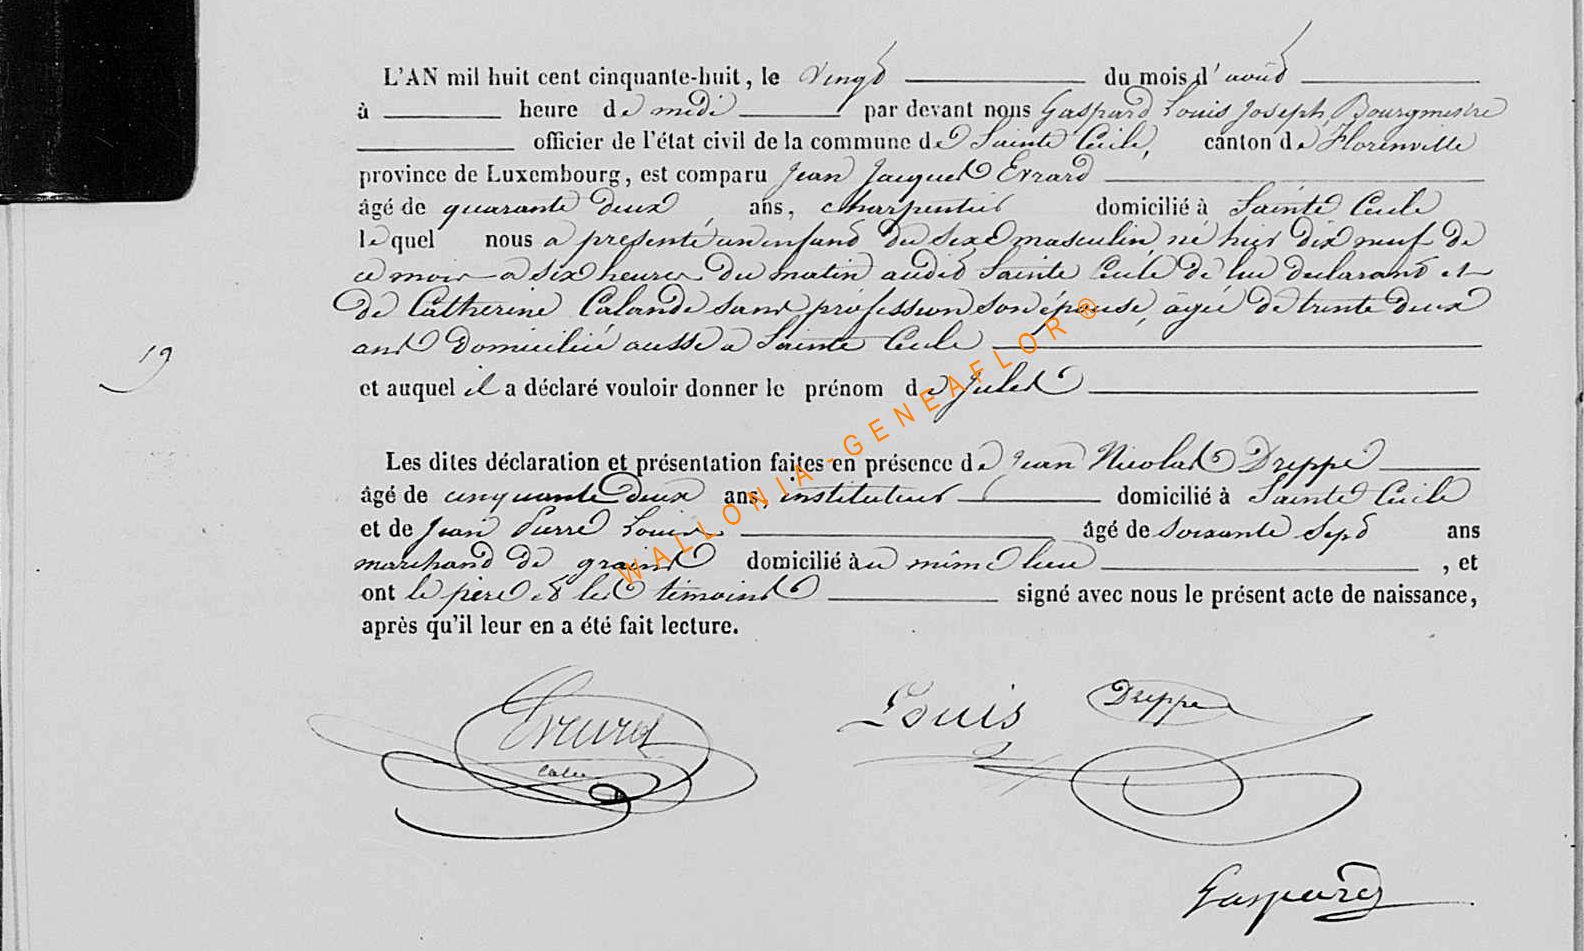 L'AN mil huit cent cinquante-huit, le vingt du mois d'août
à heure de midi par devant nous Gaspard Louis Joseph, Bourgmestre
officier de l'état civil de la commune de Sainte Cécile, canton de Florenville
province de Luxembourg, est comparu Jean Jacques Evrard
âgé de quarante deux, ans, charpentier domicilié à Sainte Cecile
lequel nous a présenté un enfant du sexe masculin, né hier dix neuf de
ce mois a six heures du matin audit Sainte Cecile de lui declarant et
de Catherine Calande sans profession son épouse, âgée de trente deux
ans domiciliée aussi a Sainte Cecile
19
et auquel il a déclaré vouloir donner le prénom de Jules
Les dites déclaration et présentation faites en présence de Jean Nicolas Dreppe
âgé de cinquante deux ans, instituteur domicilié à Sainte Cecile
et de Jean Pierre Louis âgé de soixante sept ans
marchand de grains domicilié à u même lieu , et
ont le père et les témoins signé avec nous le présent acte de naissance,
après qu'il leur en a été fait lecture.
Evrard
Louis Dreppe
Gaspard
WALLONIA-GENEAFLOR®